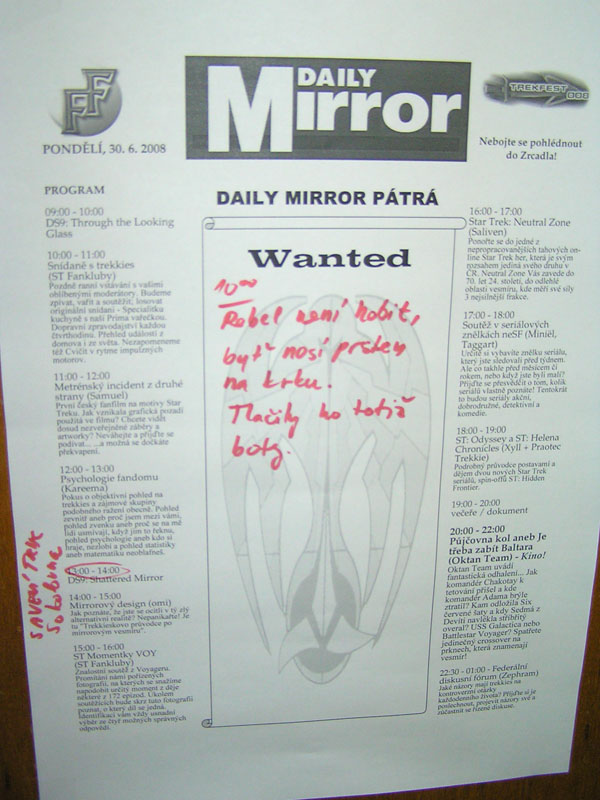 FF
DAILY
Mirror
TREKFEST
PONDĚLÍ, 30. 6. 2008
Nebojte se pohlédnout
do Zrcadla!
PROGRAM
09:00 - 10:00
DS9: Through the Looking
Glass
10:00 - 11:00
Snídaně s trekkies
(ST Fankluby)
Pozdně ranní vítávání s vašimi
oblíbenými moderátory. Budeme
zpívat, vařit a soutěžit, losovat
originální snídani - Specialitku
kuchyně s naší Prima vařečkou.
Dopravní zpravodajství každou
čtvrthodinu. Přehled událostí z
domova i ze světa. Nezapomeneme
též Cvičit v rytme impulzných
motorov.
11:00 - 12:00
Metrénský incident z druhé
strany (Samuel)
První český fanfilm na motivy Star
Treku. Jak vznikala grafická pozadí
použitá ve filmu? Chcete vidět
dosud nezveřejněné záběry a
artworky? Neváhejte a přijďte se
podívat... ...a možná se dočkáte
překvapení.
12:00 - 13:00
Psychologie fandomu
(Kareema)
Pokus o objektivní pohled na
trekkies a zájmové skupiny
podobného ražení obecně. Pohled
zevnitř aneb proč jsem mezi vámi,
pohled zvenku aneb proč se na mě
lidi usmívají, když jim to řeknu,
pohled psychologie aneb kdo si
hraje, nezlobí a pohled statistiky
aneb matematiku neoblafneš.
13:00 - 14:00
DS9: Shattered Mirror
14:00 - 15:00
Mirrorový design (omi)
Jak poznáte, že jste se ocitli v tý zlý
alternativní realitě? Nepanikařte! Je
tu "Trekkieskovo průvodce po
mirrorovým vesmíru".
15:00 - 16:00
ST Momentky VOY
(ST Fankluby)
Znalostní soutěž z Voyageru.
Promítání námi pořízených
fotografií, na kterých se snažíme
napodobit určitý moment z děje
některé z 172 epizod. Úkolem
soutěžících bude skrz tuto fotografii
poznat, o který díl se jedná.
Identifikaci vám vždy usnadní
výběr ze čtyř možných správných
odpovědí.
DAILY MIRROR PÁTRÁ
Wanted
10⁰⁰
Rebel není hobit,
byť nosí prsten
na krku.
Tlačily ho totiž
boty.
16:00 - 17:00
Star Trek: Neutral Zone
(Saliven)
Ponořte se do jedné z
nepropracovanějších tahových on-
line Star Trek her, která je svým
rozsahem jediná svého druhu v
ČR. Neutral Zone Vás zavede do
70. let 24. století, do odlehlé
oblasti vesmíru, kde měří své síly
3 nejsilnější frakce.
17:00 - 18:00
Soutěž v seriálových
znělkách neSF (Miniël,
Taggart)
Určitě si vybavíte znělku seriálu,
který jste sledovali před týdnem.
Ale co takhle před měsícem či
rokem, nebo když jste byli malí?
Přijďte se přesvědčit o tom, kolik
seriálů vlastně poznáte! Tentokrát
to budou seriály akční,
dobrodružné, detektivní a
komedie.
18:00 - 19:00
ST: Odyssey a ST: Helena
Chronicles (Xyll + Praotec
Trekkie)
Podrobný průvodce postavami a
dějem dvou nových Star Trek
seriálů, spin-offů ST: Hidden
Frontier.
19:00 - 20:00
večeře / dokument
20:00 - 22:00
Půjčovna kol aneb Je
třeba zabít Baltara
(Oktan Team) - Kino!
Oktan Team uvádí
fantastická odhalení... Jak
komandér Chakotay k
tetování přišel a kde
komandér Adama hrýle
ztratil? Kam odložila Six
červené šaty a kdy Sedmá z
Devíti navlékla stříbřitý
overal? USS Galactica nebo
Battlestar Voyager? Spatřete
jedinečný crossover na
prknech, která znamenají
vesmír!
22:30 - 01:00 - Federální
diskusní fórum (Zephram)
Jaké názory mají trekkies na
kontroverzní otázky
každodenního života? Přijďte si je
poslechnout, projevit názory své a
zúčastnit se řízené diskuse.